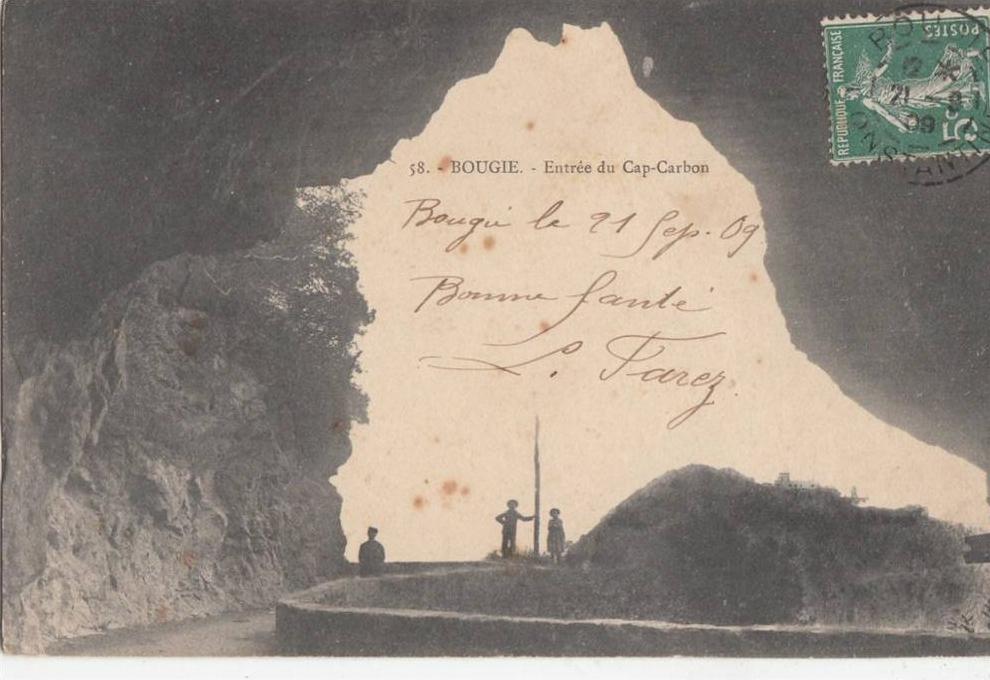 58. - BOUGIE. - Entrée du Cap-Carbon
Bougie le 21 Sep. 09
Bonne Santé
L. Farez
RÉPUBLIQUE FRANÇAISE
POSTES
5c
21 - 9
09